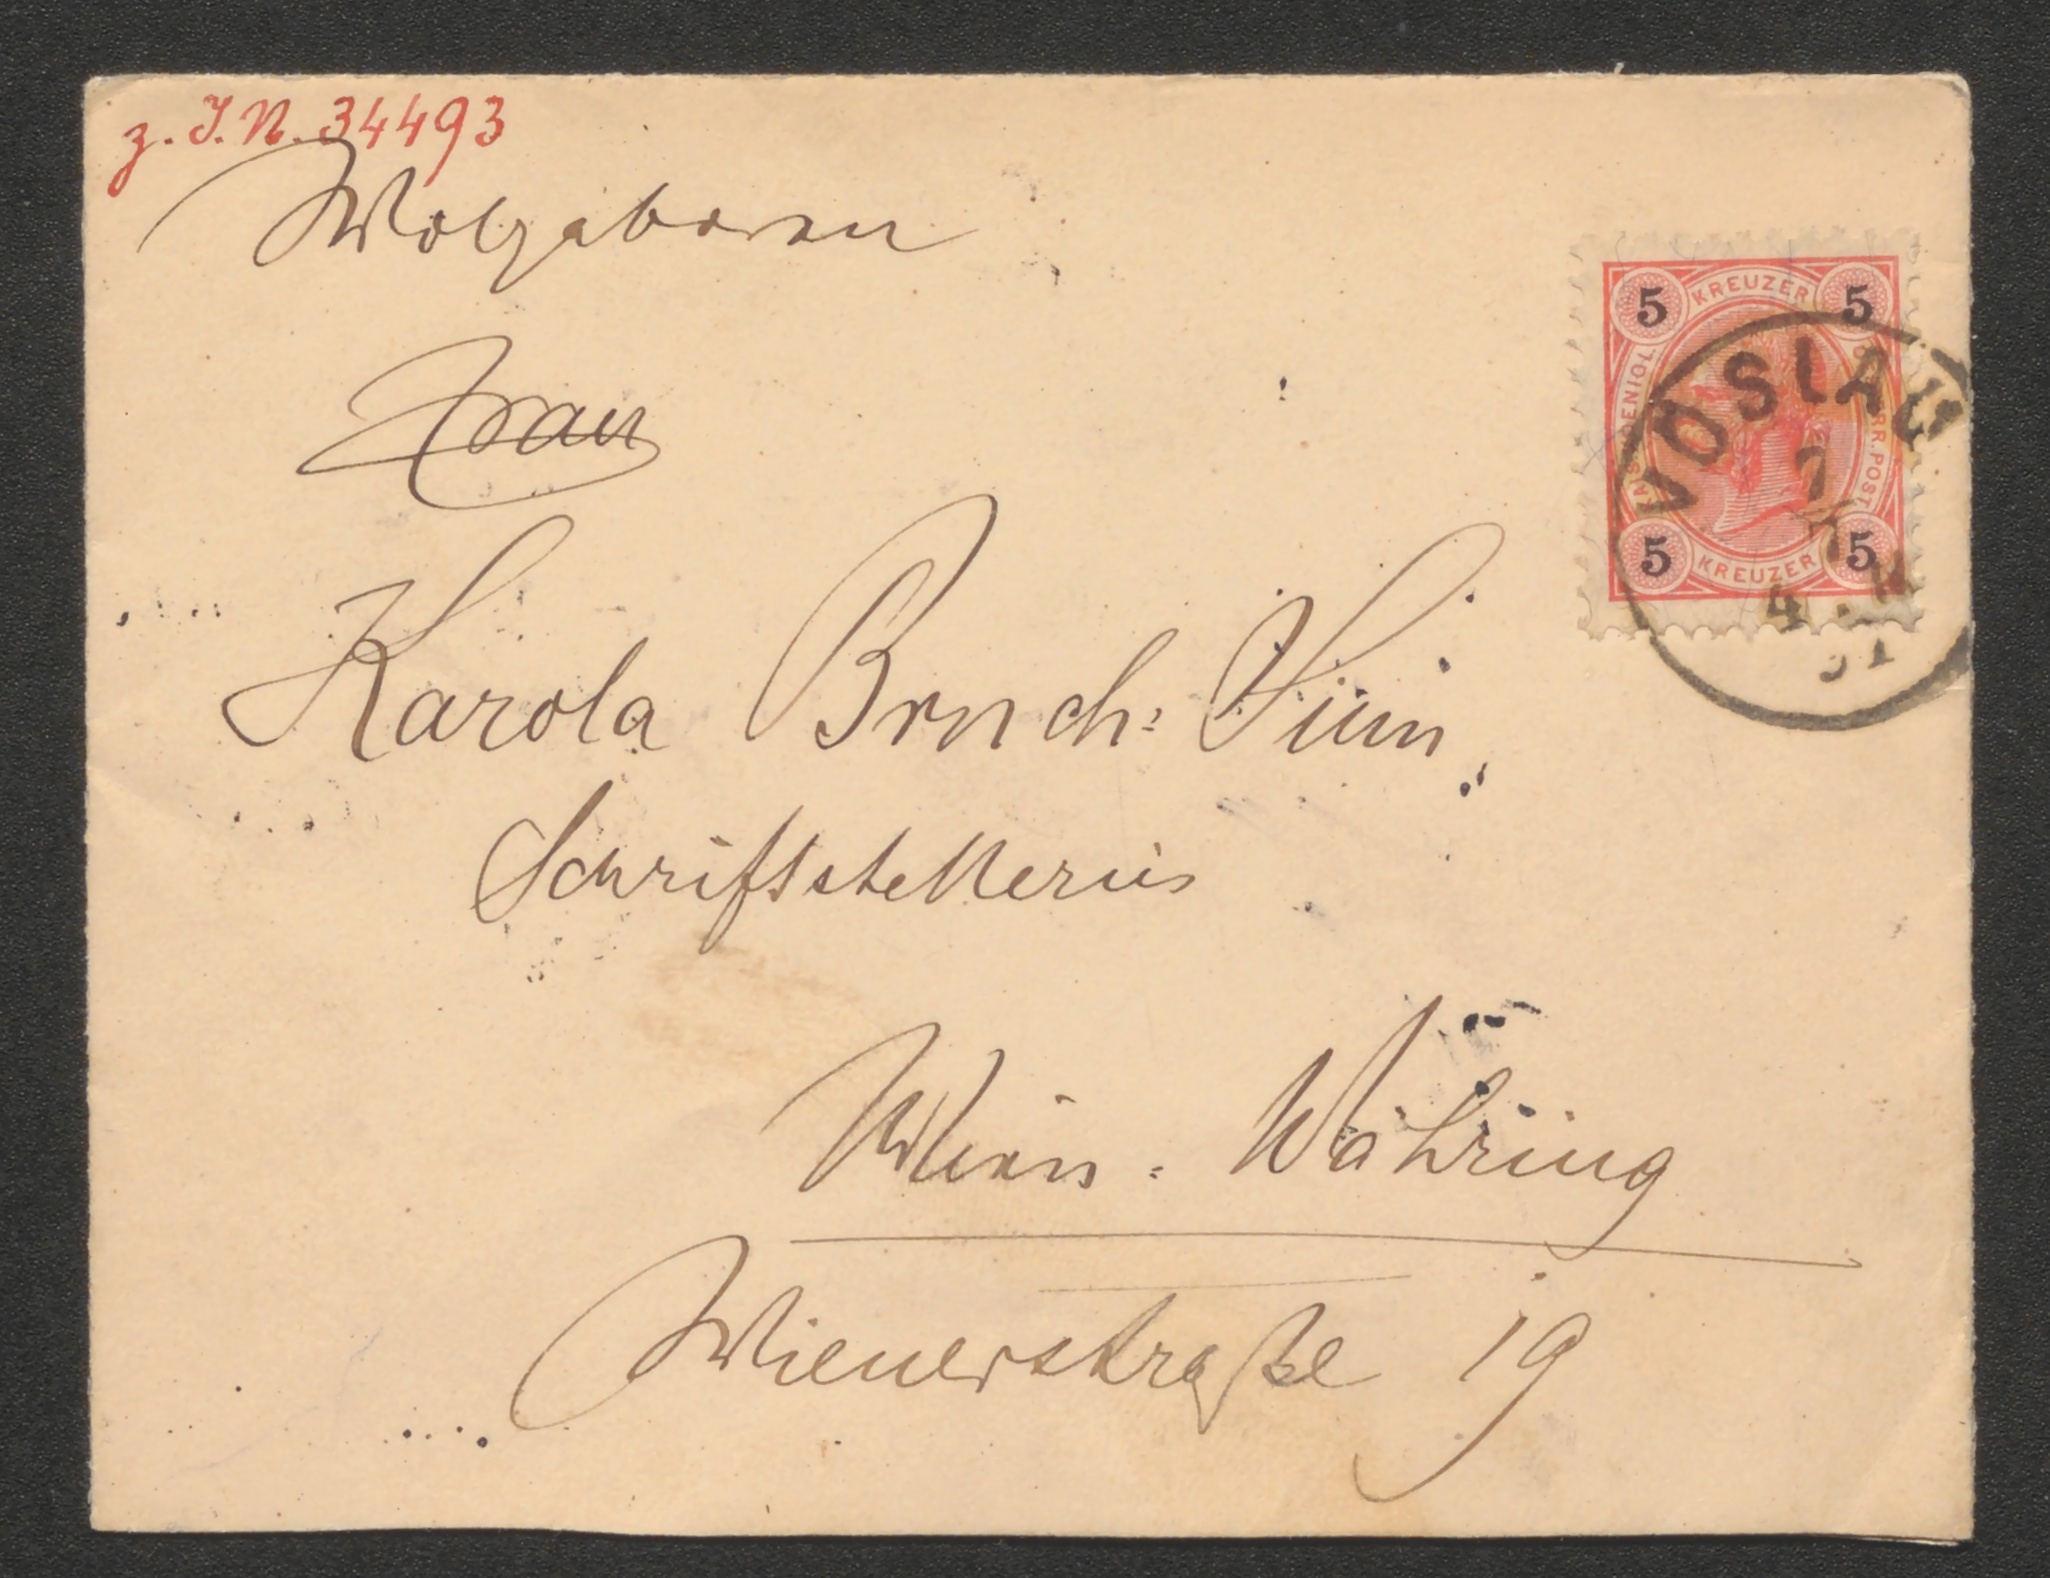 z. I. N. 34493
Wolgeboren
Frau
Karola Bruch-Sinn
Schriftstellerin
Wien - Währing
Wienerstraße 19
5 KREUZER 5
5 KREUZER 5
VÖSLAU